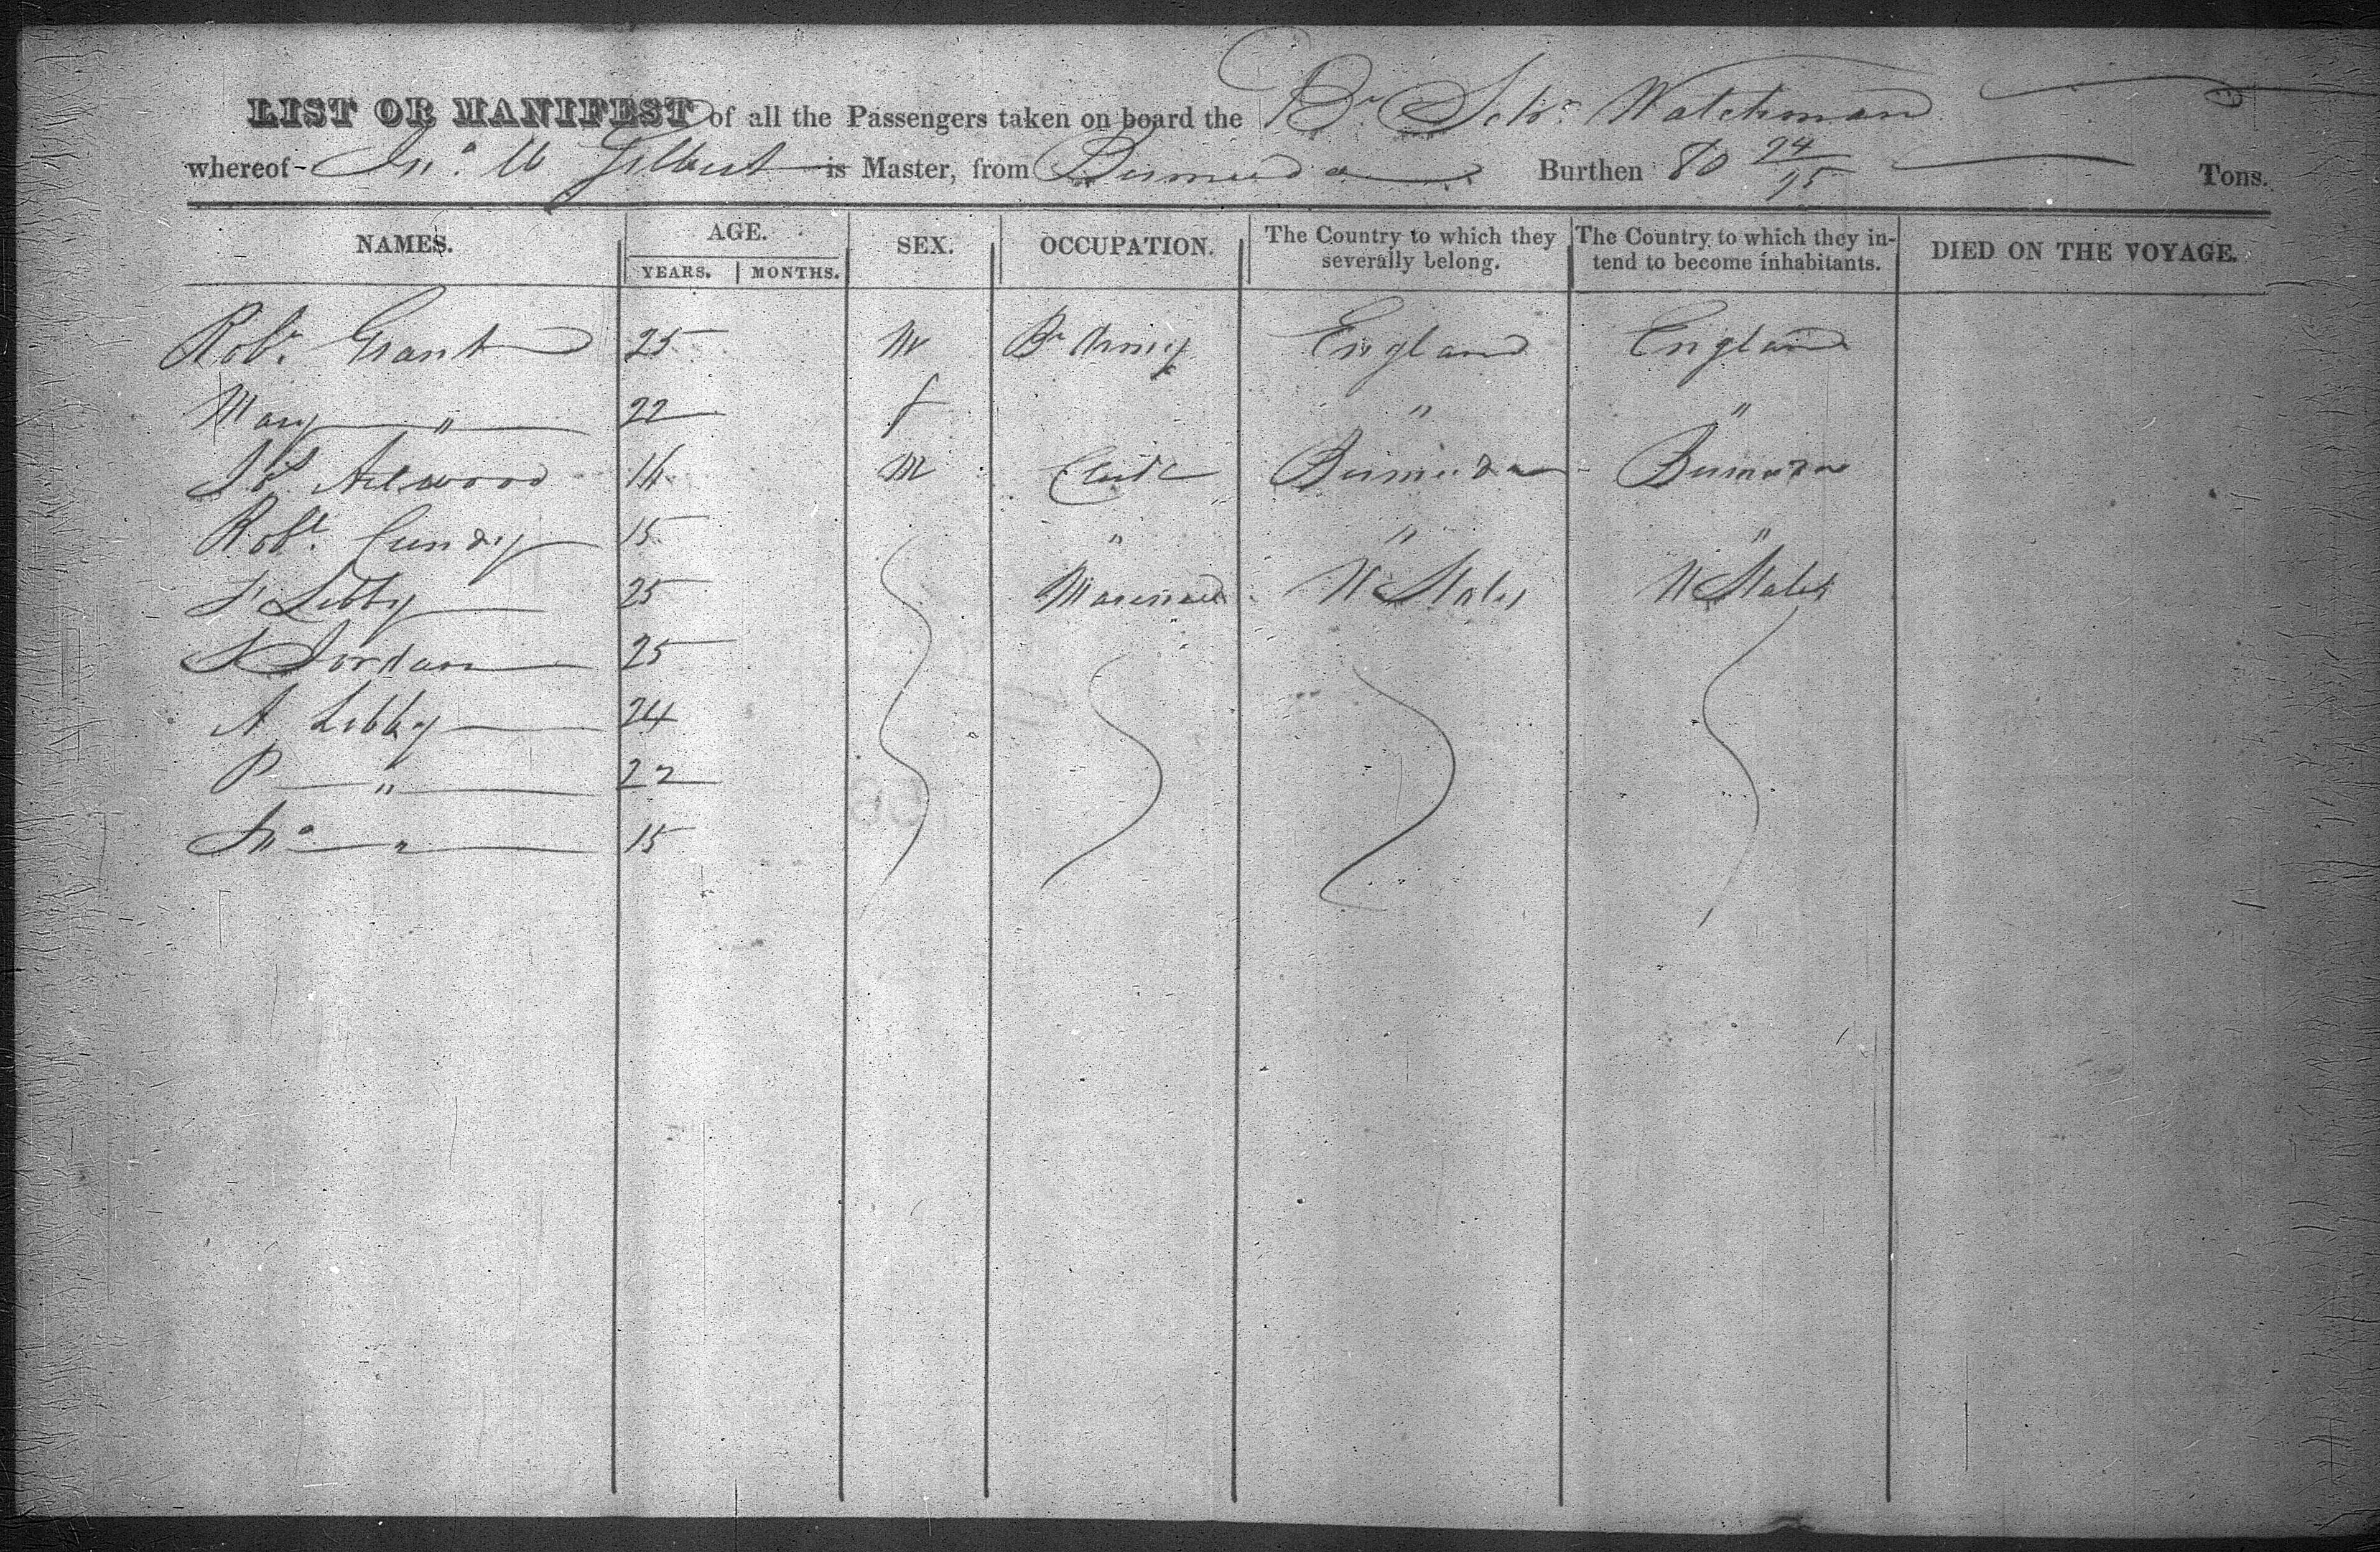 LIST OR MANIFEST of all the Passengers taken on board the Br Schr Watchman
whereof Jno. W Gilbert is Master, from Bermuda Burthen 80 94/95 Tons.
NAMES. AGE. SEX. OCCUPATION. The Country to which they severally belong. The Country to which they intend to become inhabitants. DIED ON THE VOYAGE.
YEARS. MONTHS.
Robt. Grant 25 M Br Army England England
Mary " 22 f " "
Atwood 16 M Clerk Bermuda Bermuda
Robt. Gundry 15 " " "
Libby 25 Mariner U States U States
Jordan 25
A Libby 24
P " 22
Jno " 15